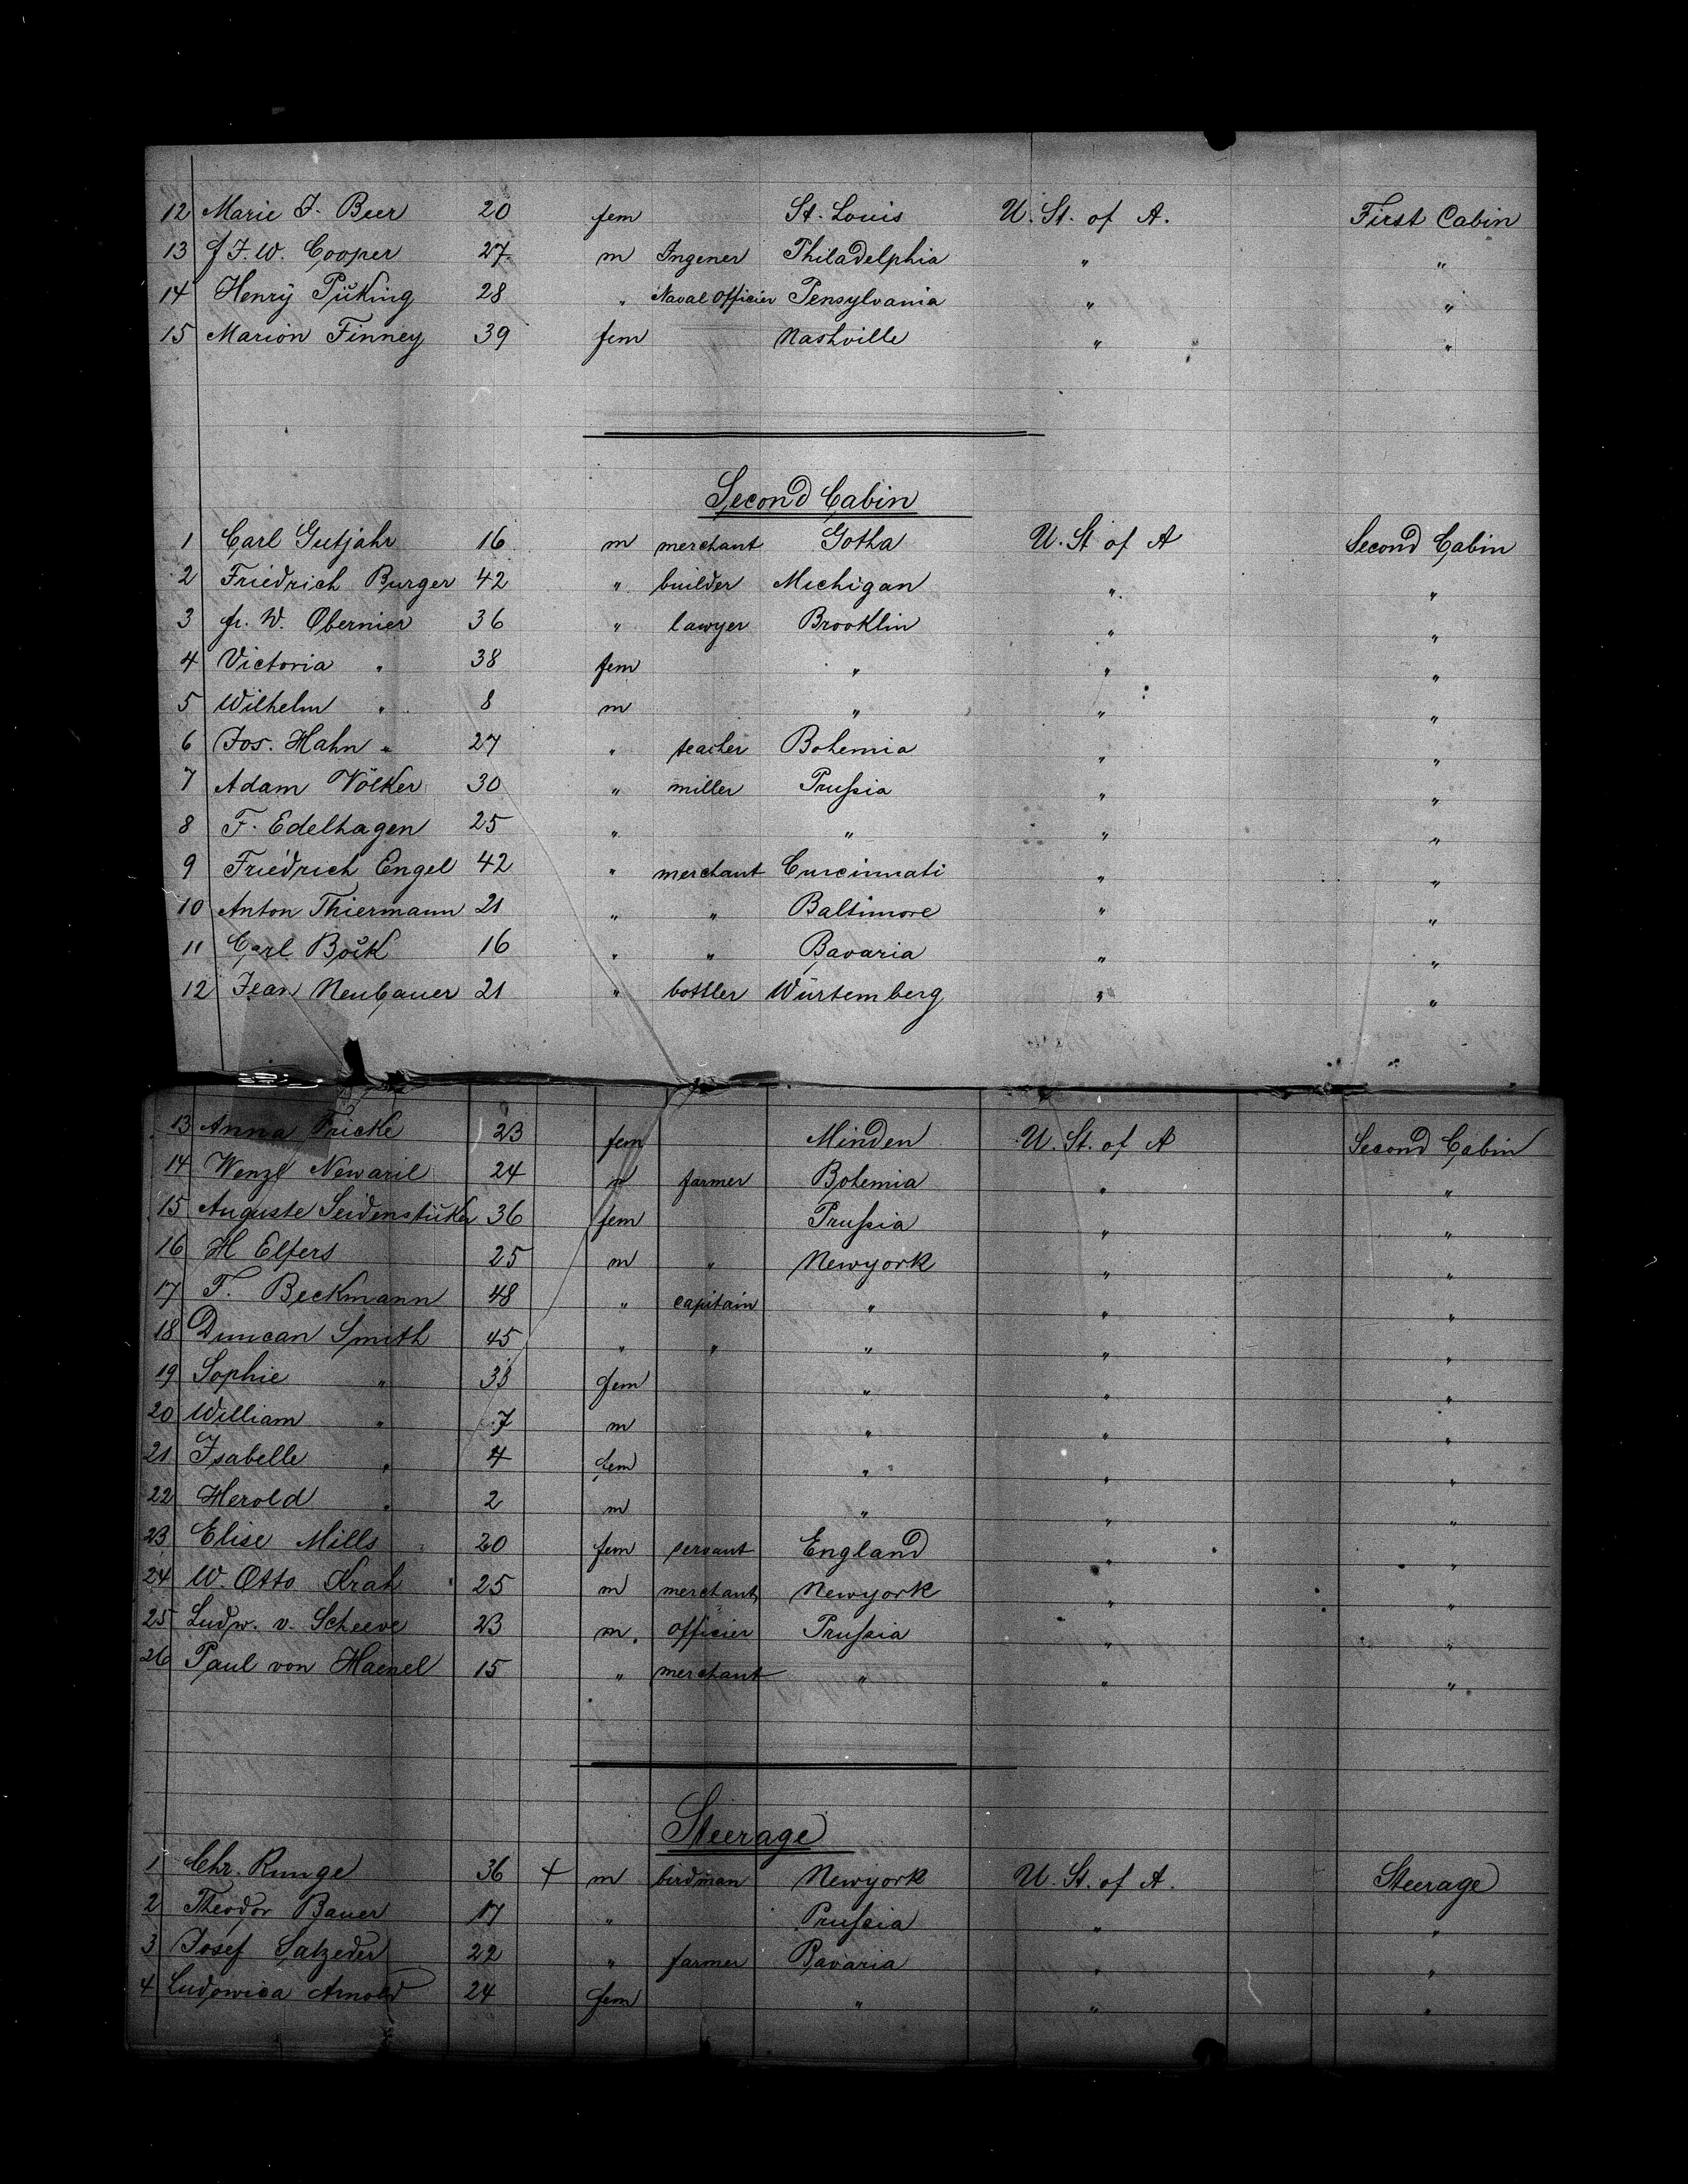 12 Marie F. Beer 20 fem St. Louis U. St. of A. First Cabin
13 J. F. W. Cooper 27 m Ingener Philadelphia " "
14 Henry Püking 28 " Naval Officier Pensylvania " "
15 Marion Finney 39 fem Nashville " "
Second Cabin
1 Carl Gutjahr 16 m merchant Gotha U. St of A Second Cabin
2 Friedrich Burger 42 " builder Michigan " "
3 Fr. W. Obernier 36 " lawyer Brooklin " "
4 Victoria " 38 fem " " "
5 Wilhelm " 8 m " " "
6 Jos. Hahn " 27 " teacher Bohemia " "
7 Adam Völker 30 " miller Prussia " "
8 F. Edelhagen 25 " " " "
9 Friedrich Engel 42 " merchant Cincinnati " "
10 Anton Thiermann 21 " " Baltimore " "
11 Carl Böik 16 " " Bavaria " "
12 Jean Neubauer 21 " bottler Würtemberg " "
13 Anna Fricke 23 fem Minden U. St. of A Second Cabin
14 Wenzl Newaril 24 m farmer Bohemia " "
15 Auguste Seidenstüker 36 fem Prussia " "
16 H Elfers 25 m " Newyork " "
17 T. Beckmann 48 " capitain " " "
18 Duncan Smith 45 " " " " "
19 Sophie " 33 fem " " "
20 William " 7 m " " "
21 Isabelle " 4 fem " " "
22 Herold " 2 m " " "
23 Elise Mills 20 fem servant England " "
24 W. Otto Krah 25 m merchant Newyork " "
25 Ludw. v. Scheeve 23 m. officier Prussia " "
26 Paul von Haenel 15 " merchant " " "
Steerage
1 Chr. Runge 36 + m birdman Newyork U. St. of A. Steerage
2 Theodor Bauer 17 " Prussia " "
3 Josef Satzeder 22 " farmer Bavaria " "
4 Ludowica Arnold 24 fem " " "